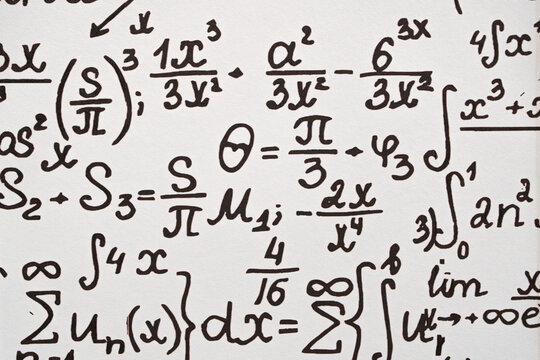 x
3x (S/π)³; 1x³/3x² · a²/3x² − 6³ˣ/3x² 4∫x
os² x θ = π/3 · φ₃ ∫ x³+
S₂ · S₃ = S/π M₁; − 2x/x⁴ 3) ∫₀¹ 2n²
∞ ∫4x 4/16 ∞ b lim x
∑ uₙ(x)} dx = ∑ {∫ u x→+∞ e